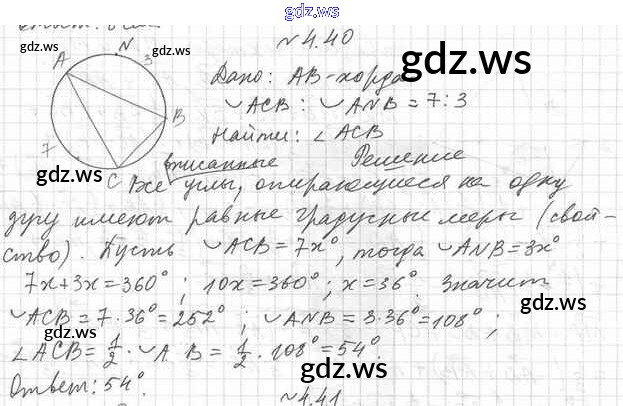 gdz.ws
№ 4.40
gdz.ws
A N 3 B 7 C
Дано: AB - хорда
◡ACB : ◡ANB = 7:3
Найти: ∠ACB
gdz.ws
вписанные Решение
Все углы, опирающиеся на одну
дугу имеют равные градусные меры (свой-
ство). Пусть ◡ACB = 7x°, тогда ◡ANB = 3x°
7x+3x=360°; 10x=360°; x=36°. Значит
◡ACB = 7·36°=252°; ◡ANB=3·36°=108°;
gdz.ws gdz.ws
∠ACB = 1/2 · ◡A B = 1/2 · 108°=54°.
gdz.ws
Ответ: 54°.
№ 4.41